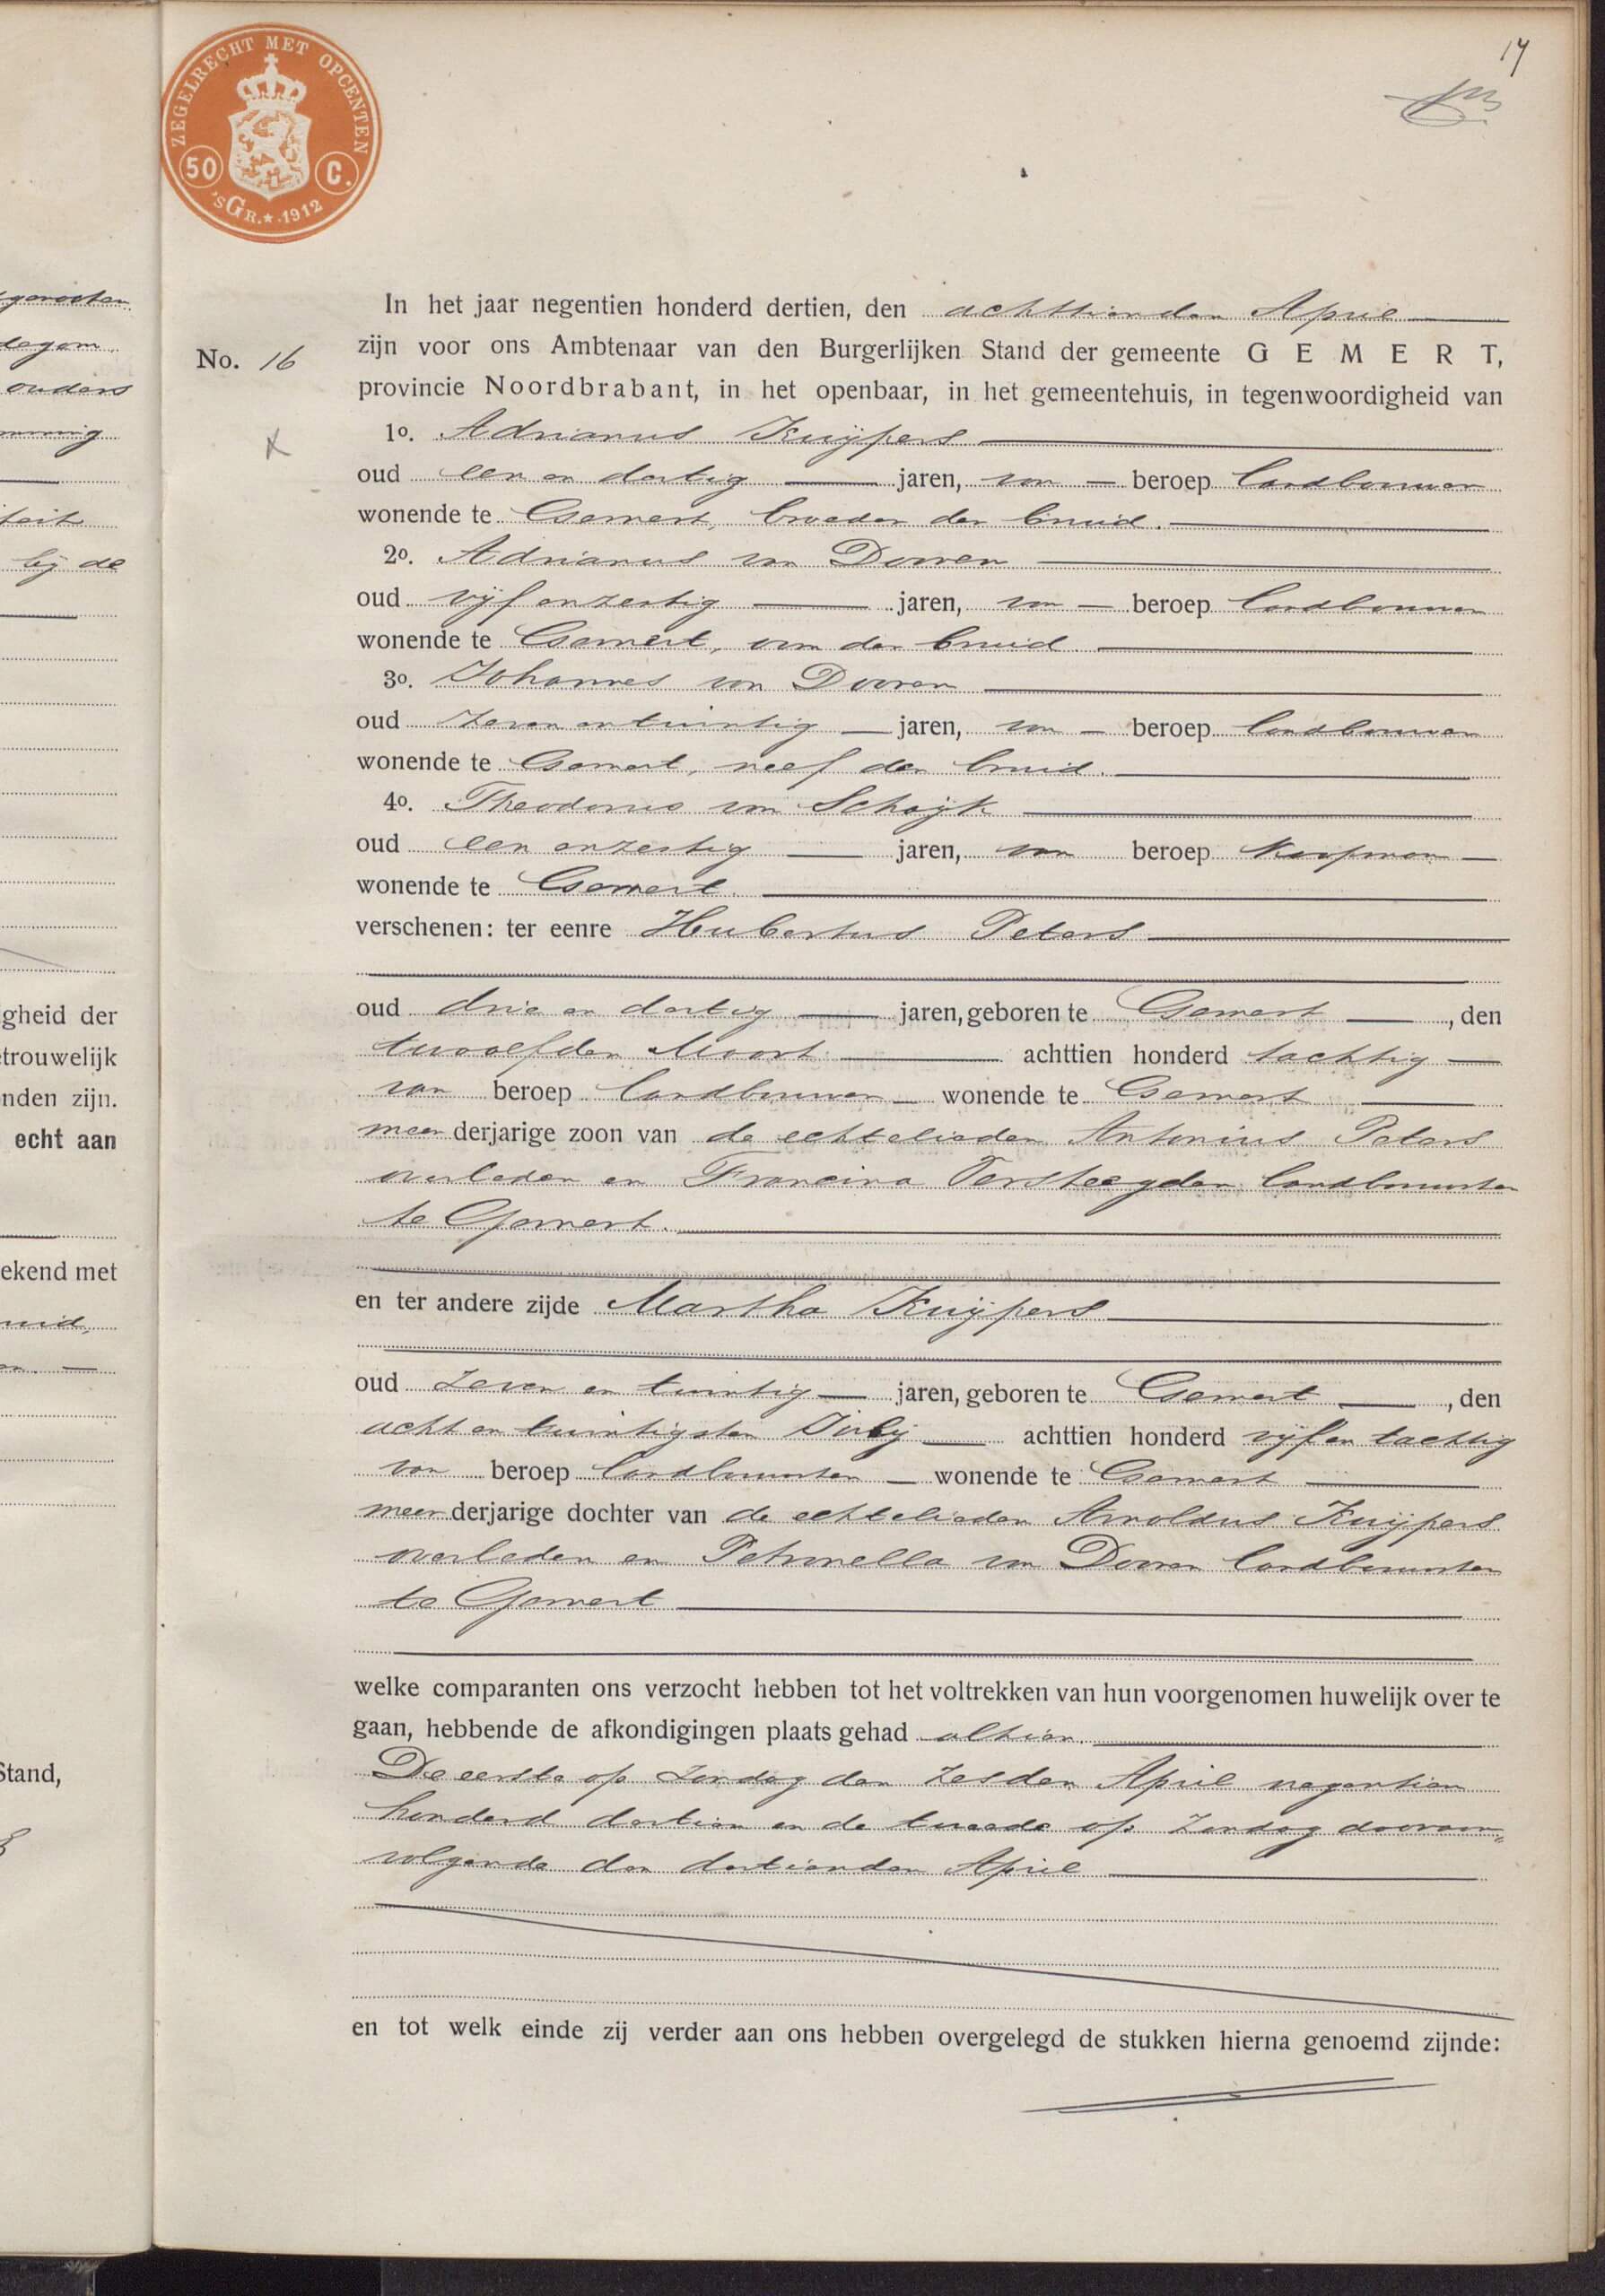 ZEGELRECHT MET OPCENTEN
50 C.
'sGR.★.1912
17
In het jaar negentien honderd dertien, den achttienden April
No. 16
zijn voor ons Ambtenaar van den Burgerlijken Stand der gemeente GEMERT,
provincie Noordbrabant, in het openbaar, in het gemeentehuis, in tegenwoordigheid van
1o. Adrianus Kuijpers
oud een en dertig jaren, van beroep landbouwer
wonende te Gemert, broeder der bruid.
2o. Adrianus van Dooren
oud vijf en zestig jaren, van beroep landbouwer
wonende te Gemert, oom der bruid.
3o. Johannes van Dooren
oud zeven en twintig jaren, van beroep landbouwer
wonende te Gemert, neef der bruid.
4o. Theodorus van Schijk
oud een en zestig jaren, van beroep koopman
wonende te Gemert.
verschenen: ter eenre Hubertus Peters
oud drie en dertig jaren, geboren te Gemert, den
twaalfden Maart achttien honderd tachtig
van beroep landbouwer wonende te Gemert
meerderjarige zoon van de echtelieden Antonius Peters
overleden en Francina Versteegden landbouwster
te Gemert.
en ter andere zijde Martha Kuijpers
oud zeven en twintig jaren, geboren te Gemert, den
acht en twintigsten Julij achttien honderd vijf en tachtig
van beroep landbouwster wonende te Gemert
meerderjarige dochter van de echtelieden Arnoldus Kuijpers
overleden en Petronella van Dooren landbouwster
te Gemert
welke comparanten ons verzocht hebben tot het voltrekken van hun voorgenomen huwelijk over te
gaan, hebbende de afkondigingen plaats gehad alhier.
De eerste op Zondag den zesden April negentien
honderd dertien en de tweede op Zondag daaraan„
volgende den dertienden April
en tot welk einde zij verder aan ons hebben overgelegd de stukken hierna genoemd zijnde:
degem
ouders
teit
bij de
gheid der
trouwelijk
nden zijn.
echt aan
ekend met
uid,
Stand,